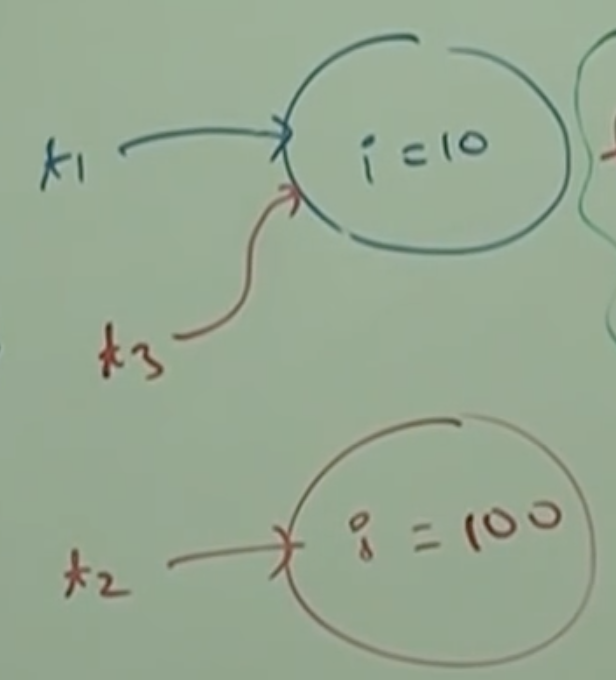 t1
i = 10
t3
t2
i = 100